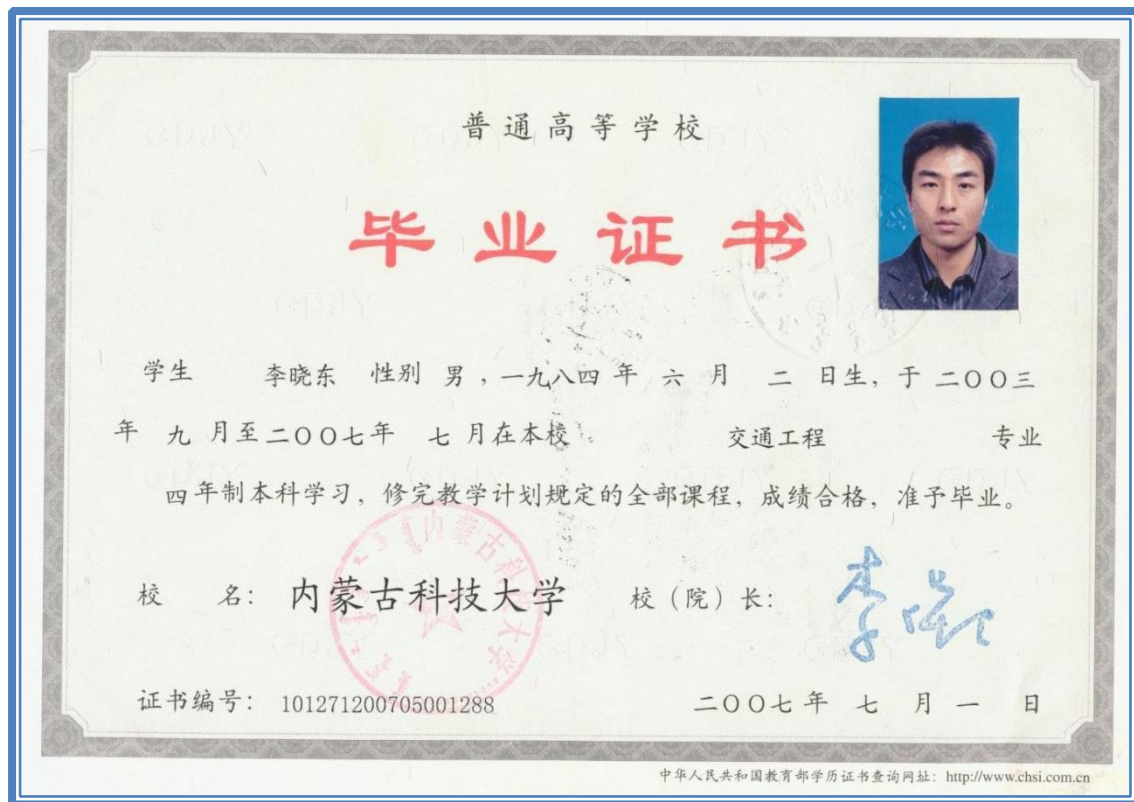 普通高等学校
毕业证书
学生 李晓东 性别 男，一九八四 年 六 月 二 日生，于 二〇〇三
年 九 月至 二〇〇七 年 七 月在本校 交通工程 专业
四 年制本科学习，修完教学计划规定的全部课程，成绩合格，准予毕业。
校 名： 内蒙古科技大学 校（院）长：
内蒙古科技大学
证书编号： 101271200705001288 二〇〇七 年 七 月 一 日
中华人民共和国教育部学历证书查询网址：http://www.chsi.com.cn